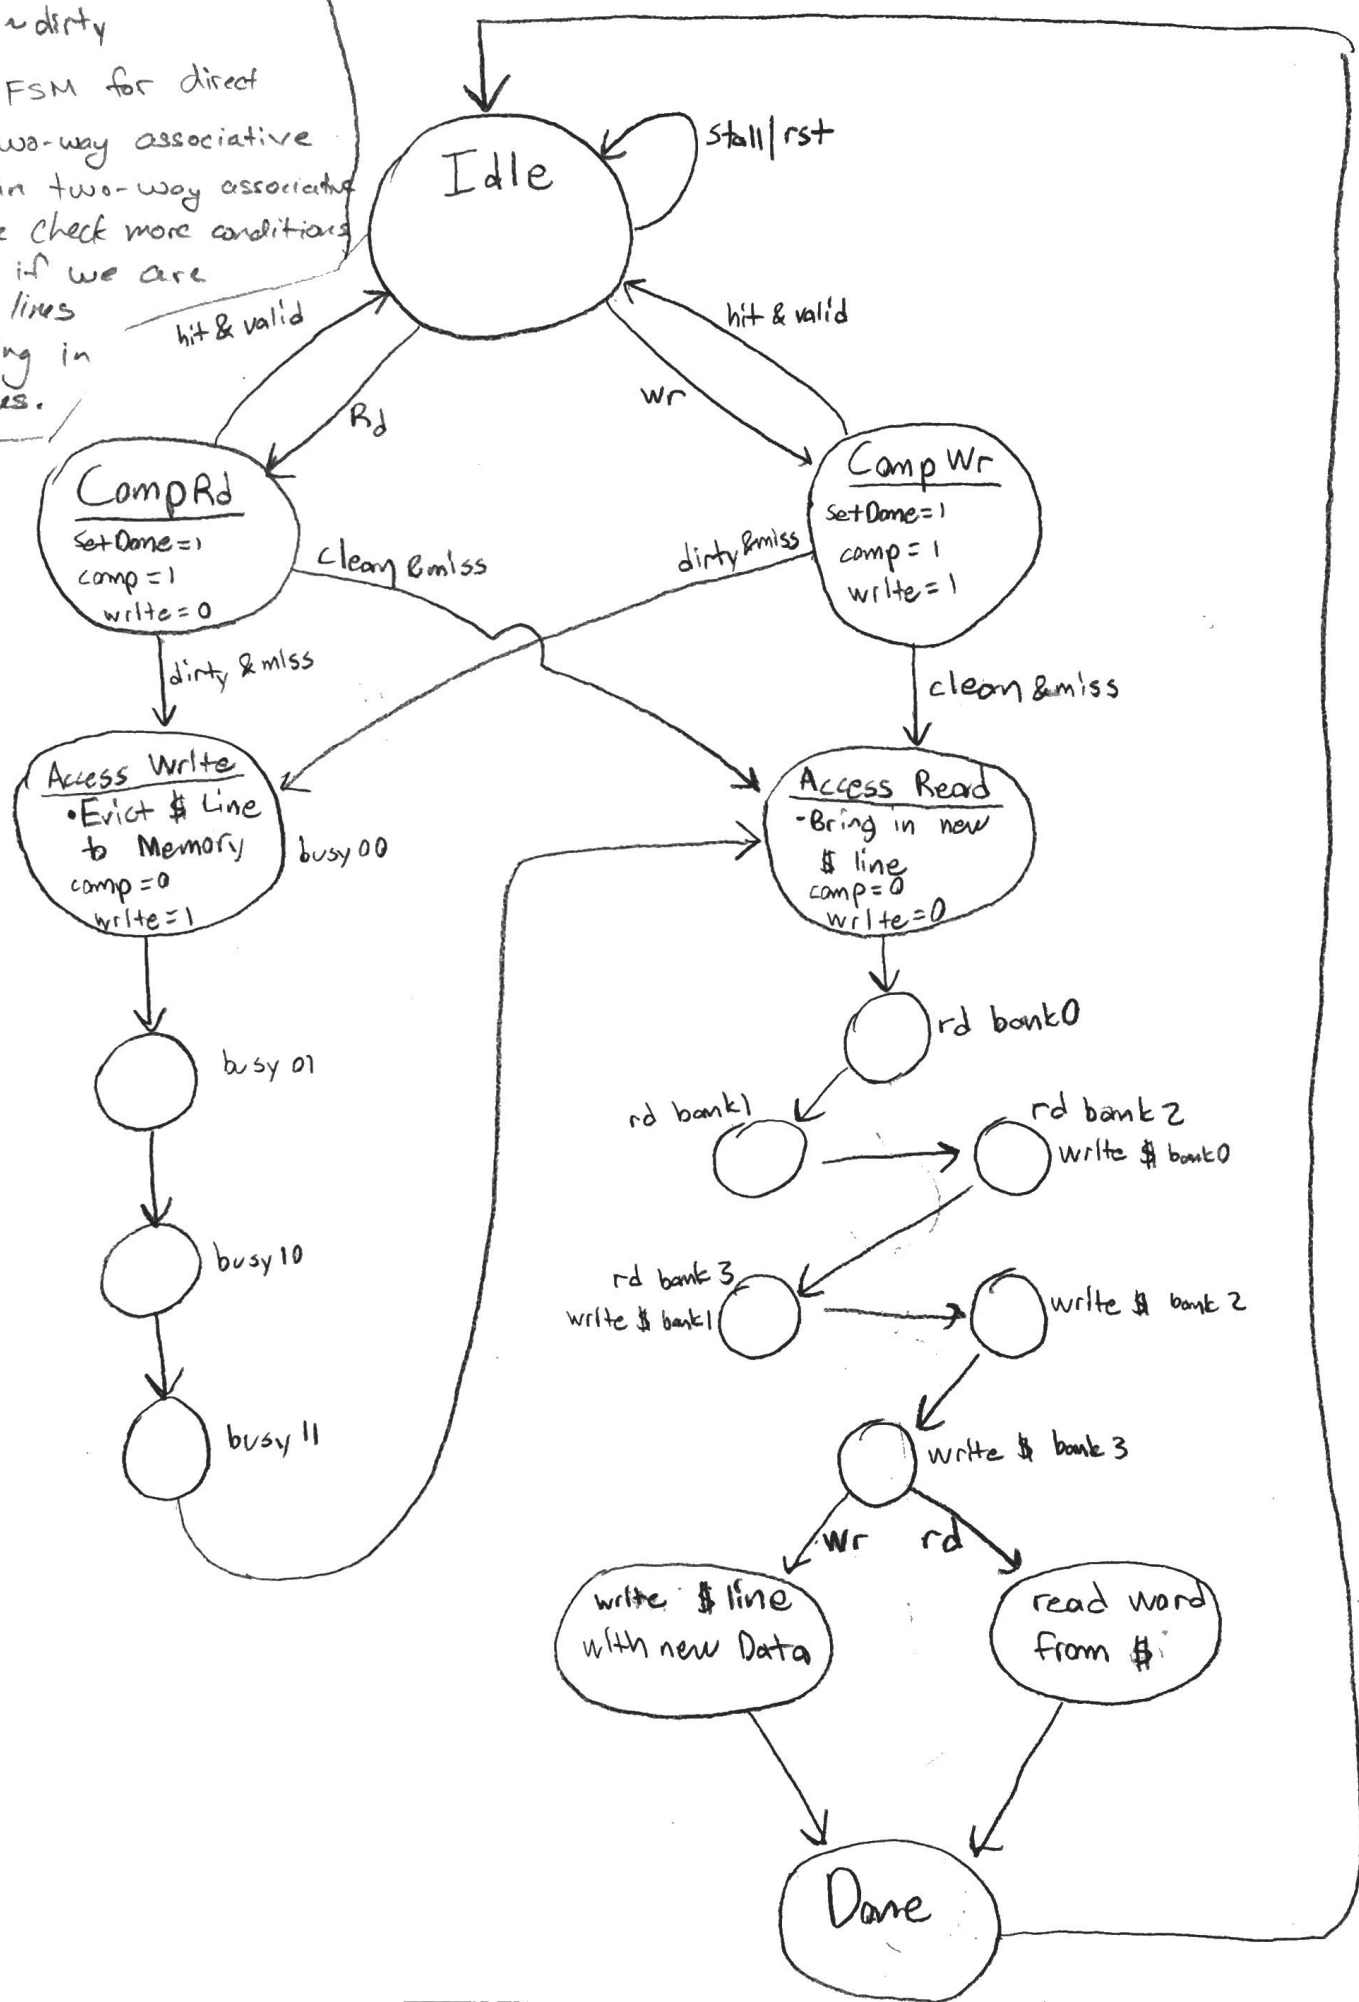 ~dirty
FSM for direct
wo-way associative
in two-way associative
e check more conditions
if we are
lines
ng in
es.
Idle
stall/rst
hit & valid
hit & valid
Rd
wr
CompRd
setDone=1
comp=1
write=0
Comp Wr
setDone=1
comp=1
write=1
clean &miss
dirty &miss
dirty &miss
clean &miss
Access Write
•Evict $ Line
to Memory
comp=0
write=1
busy 00
Access Read
-Bring in new
$ line
comp=0
write=0
busy 01
rd bank0
rd bank1
rd bank 2
write $ bank0
busy 10
rd bank 3
write $ bank1
write $ bank 2
busy 11
write $ bank 3
wr
rd
write $ line
with new Data
read word
from $
Done